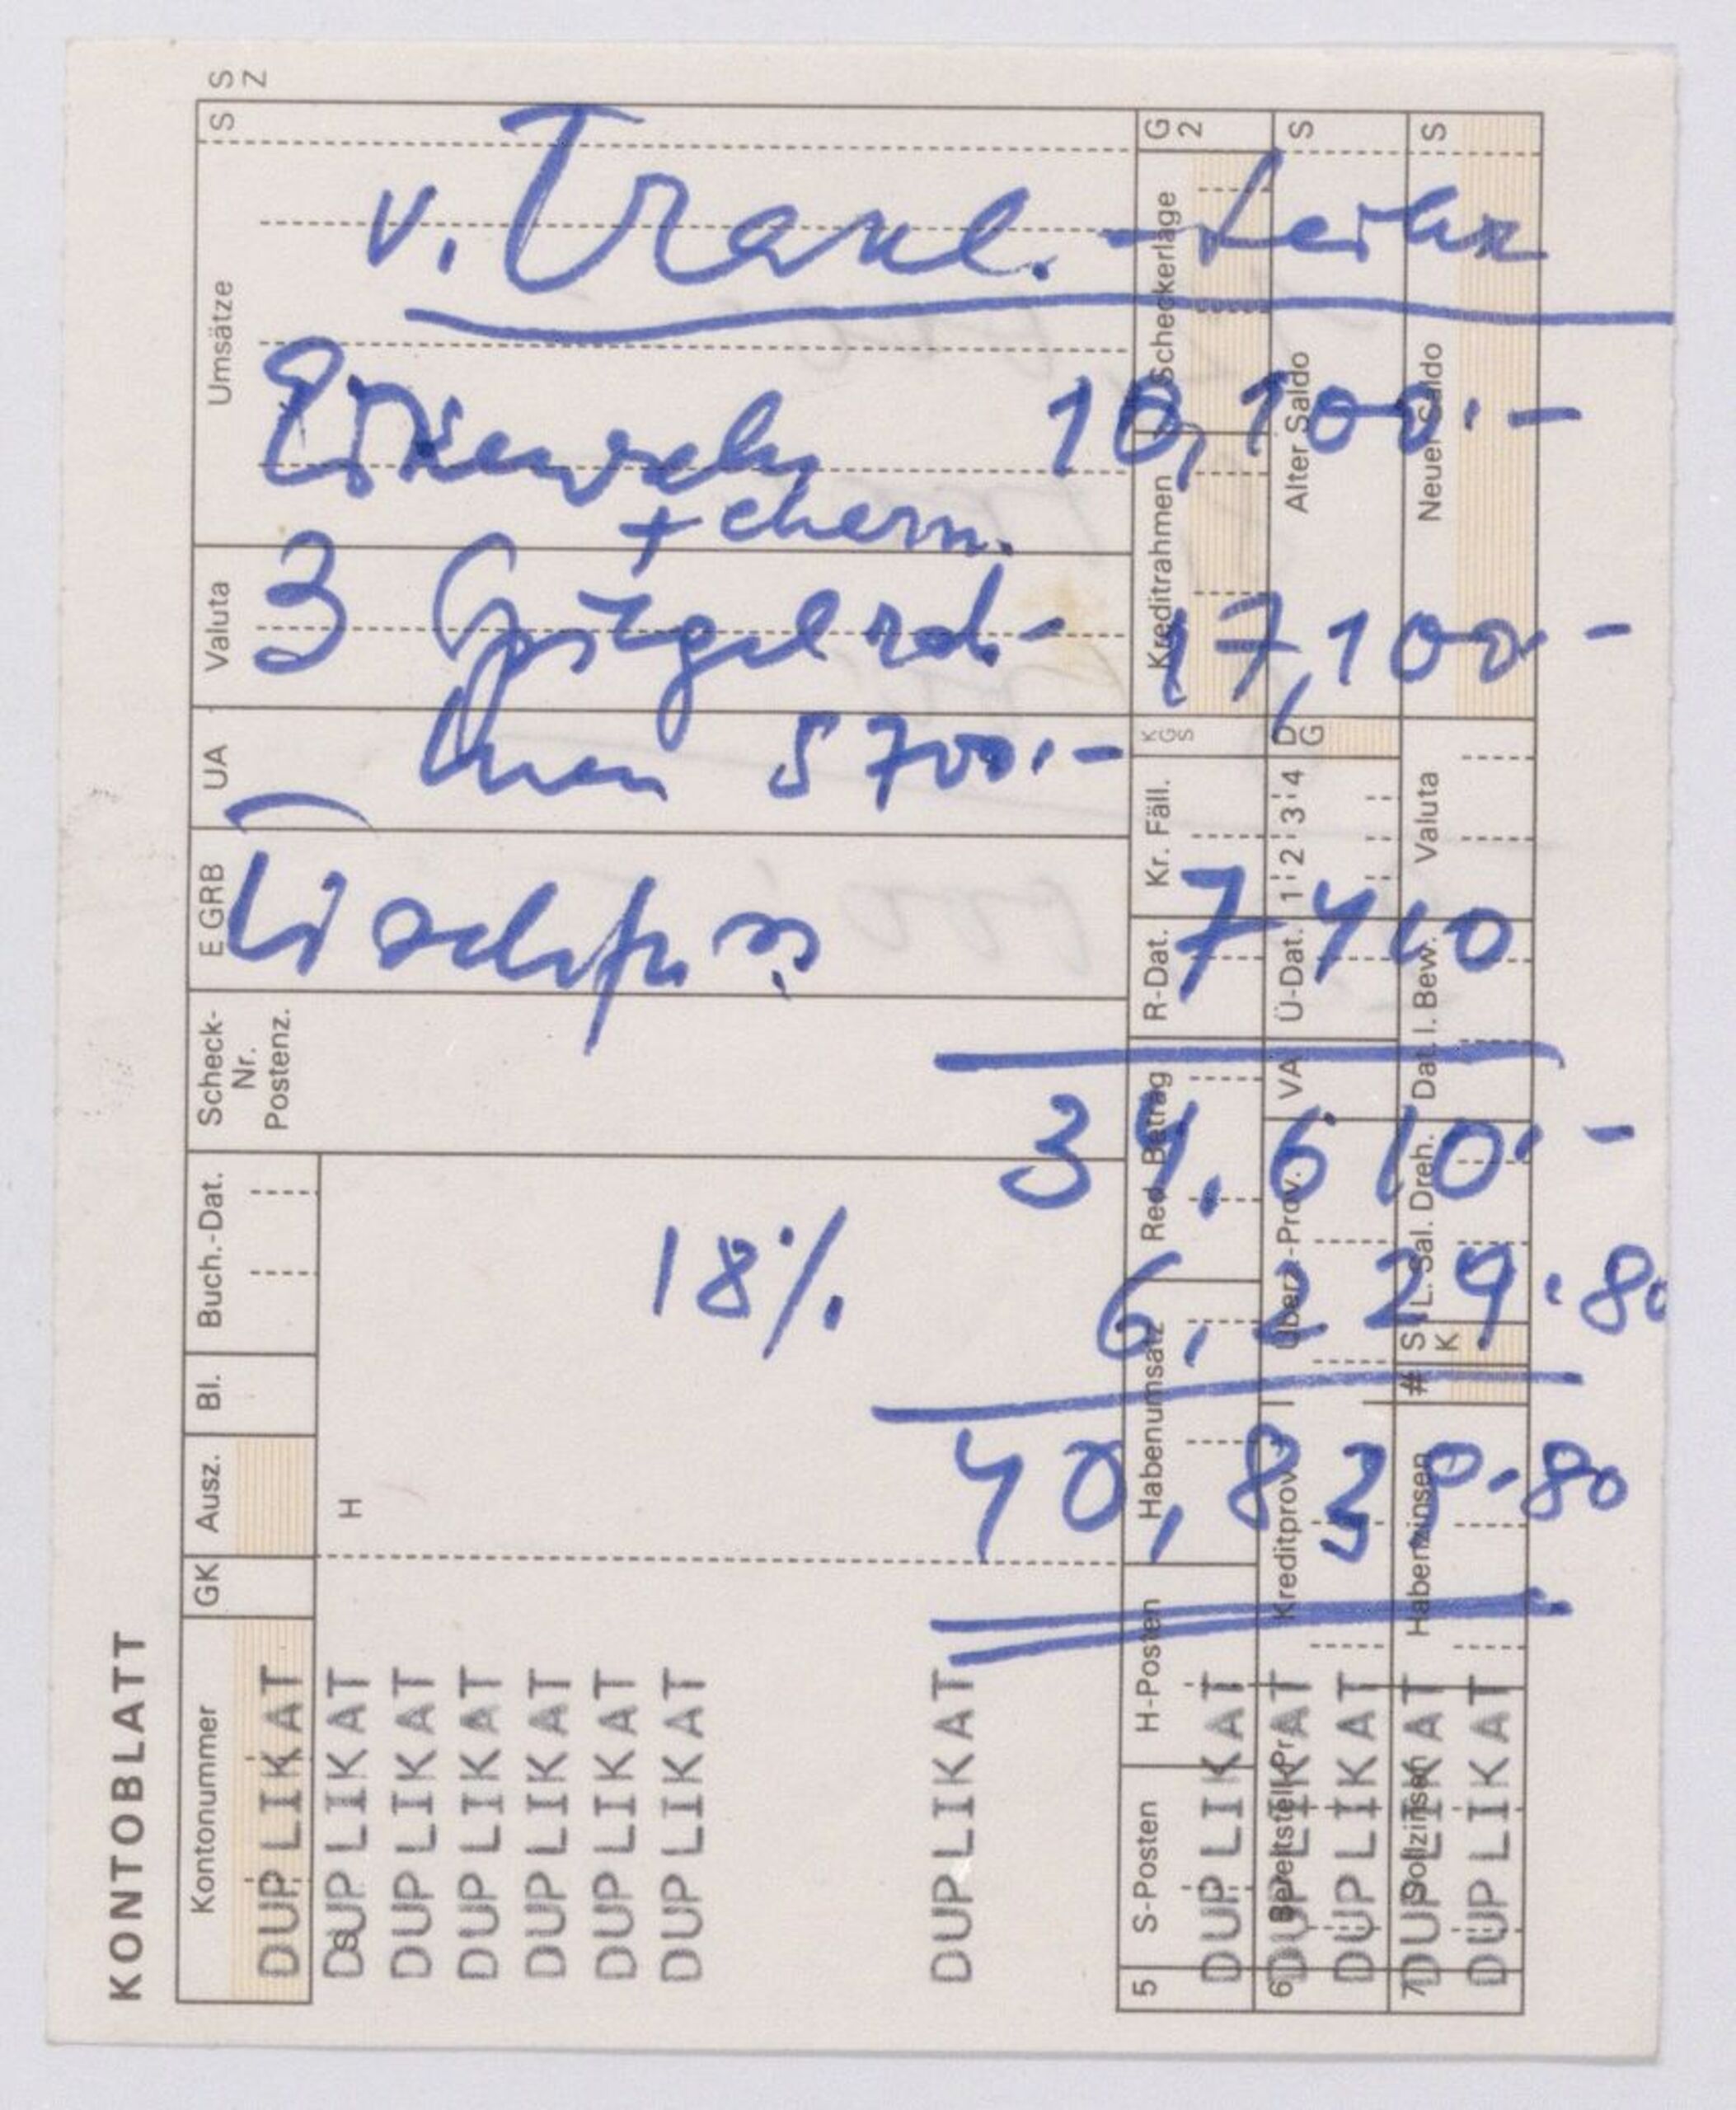 v. Traxl. -
10,100.-
+ chem.
3 Spiegelrah-
men 5700.- 17,100.-
Tischfuss 7410
34.610.-
18% 6,229.80
40,839.80
KONTOBLATT
Kontonummer GK Ausz. Bl. Buch.-Dat. Scheck-Nr. Postenz. E GRB UA Valuta Umsätze S S Z
DUPLIKAT
DUPLIKAT H
DUPLIKAT
DUPLIKAT
DUPLIKAT
DUPLIKAT
DUPLIKAT
DUPLIKAT
5 S-Posten H-Posten Habenumsatz Red. Betrag R-Dat. Kr. Fäll. K G S Kreditrahmen Scheckerlage G 2
DUPLIKAT
6 Bereitstell.-Pr. Kreditprov. Überz.-Prov. VA Ü-Dat. 1 2 3 4 D G Alter Saldo S
DUPLIKAT
DUPLIKAT
7 Sollzinsen Habenzinsen # S K L. Sal. Dreh. Dat. l. Bew. Valuta Neuer Saldo S
DUPLIKAT
DUPLIKAT